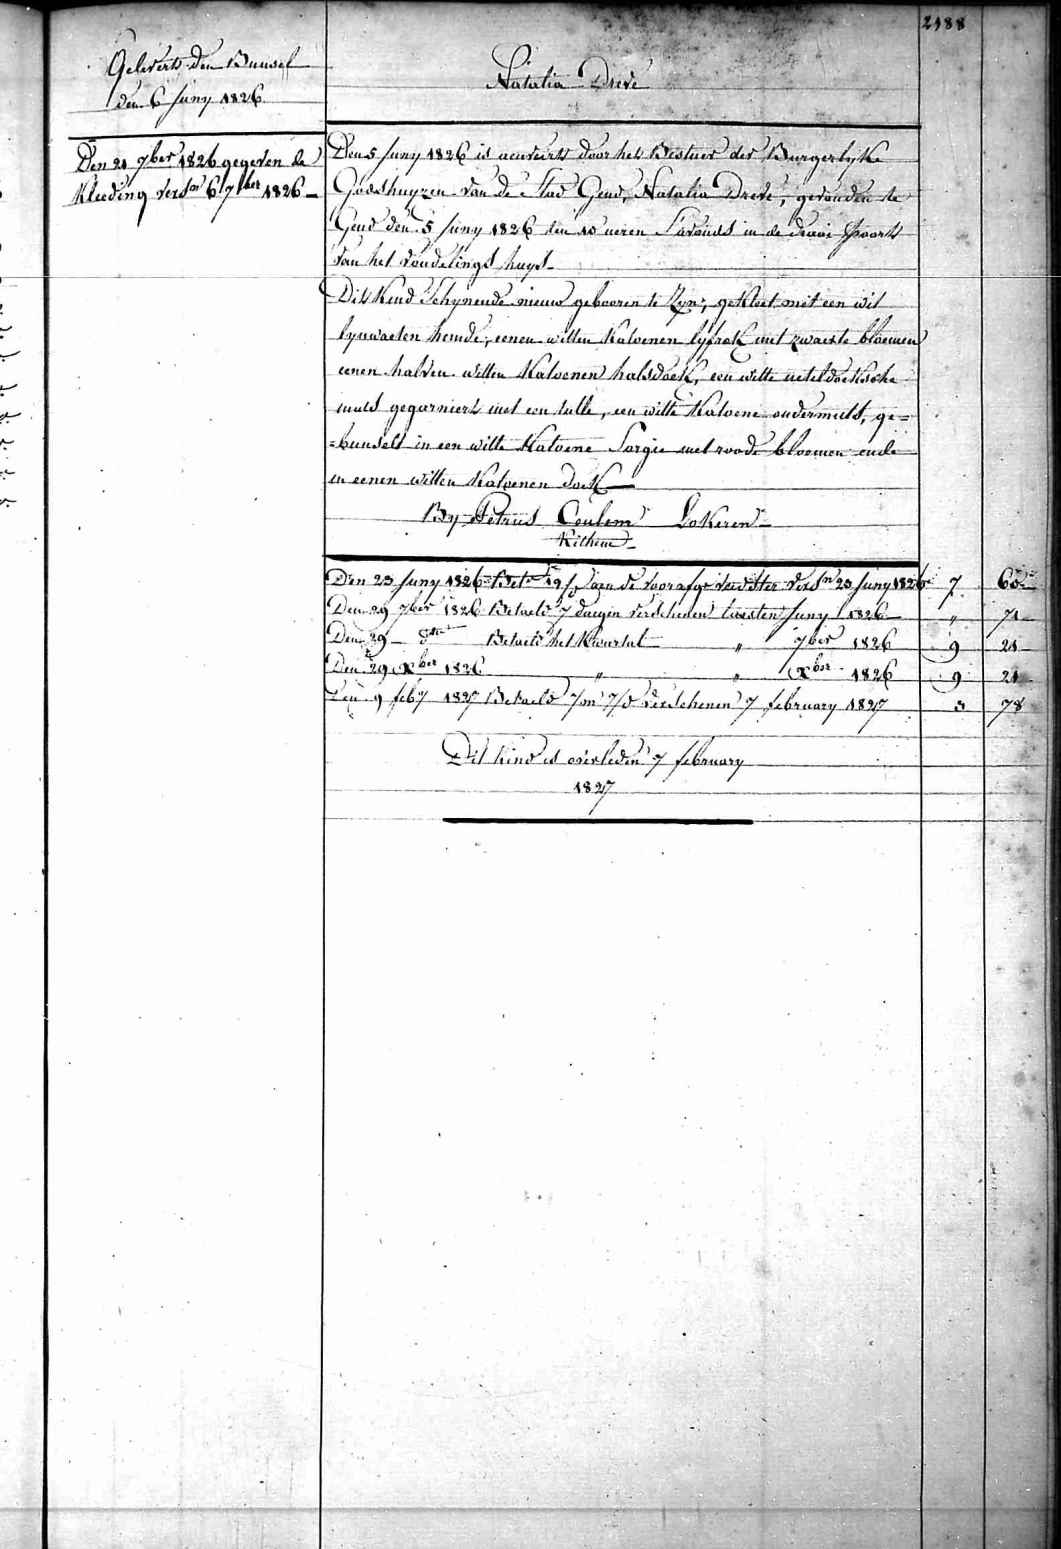 2188
Geleverts den Bunsel
den 6 Juny 1826
Natalia Dreve
Den 21 7ber 1826 gegeven de
Kleeding versn 6 7ber 1826 –
Den 5 Juny 1826 is aenveirt door het Bestuer der Burgerlyke
Godshuyzen van de Stad Gend, Natalia Dreve, gevonden te
Gend den 5 Juny 1826 ten 10 ueren s'avonds in de draai Poort
van het vondelings huys –
Dit Kend schynende nieuw gebooren te Zyn, gekleet met een wit
lynwaeten hemde, eenen witten Katoenen lyfrok met zwaerte bloemen
eenen halven witten Katoenen halsdoek, een witte neteldoeksche
muts gegarniert met een tulle, een witte Katoene ondermuts, ge=
=bunselt in een witte Katoene Sargie met roode bloemen ende
in eenen witten Katoenen doek –
By Petrus Ceulem Lokeren –
Den 23 Juny 1826 19 aen de voorafge versn 23 Juny 1826 7 60
Den 29 7ber 1826 Betaelt 7 daegen verschenen Juny 1826 – " 71
Den 29 – dto Betaelt het Kwartal " 7ber 1826 9 21
Den 29 Xber 1826 " " Xber 1826 9 21
Den 9 feby 1827 Betaeld verschenen 7 february 1827 3 78
Dit kind is overleden 7 february
1827